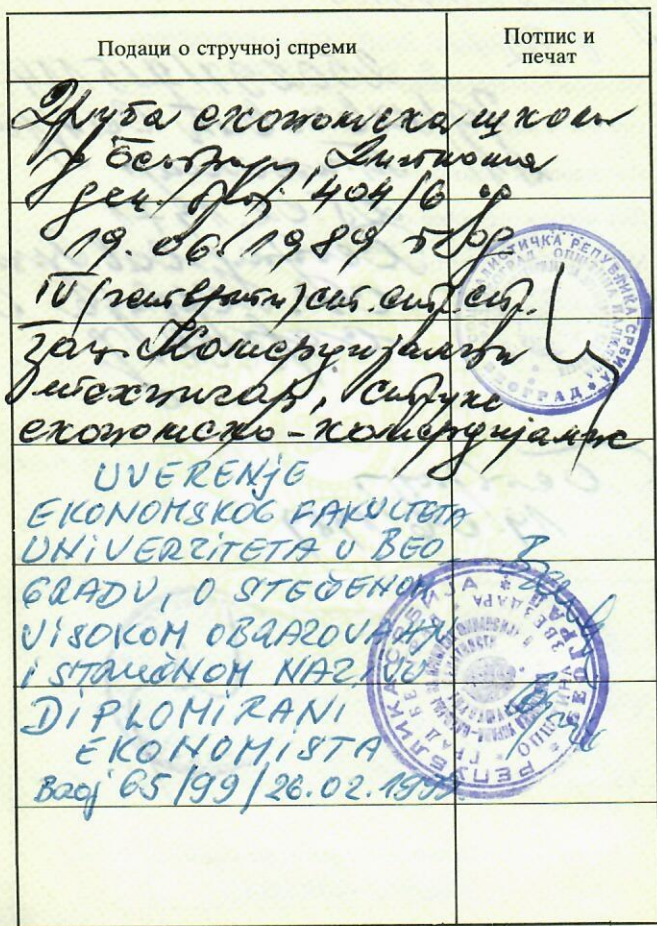 Подаци о стручној спреми
Потпис и
печат
Друга економска школа
у Београду, Диплома
дел. број 404/6 од
19. 06. 1989 год
IV (четврти) ст. стр. спр.
зан. Комерцијални
техничар, струке
економско-комерцијалне
UVERENjE
EKONOMSKOG FAKULTETA
UNIVERZITETA U BEO
GRADU, O STEČENOM
VISOKOM OBRAZOVANjU
I STRUČNOM NAZIVU
DIPLOMIRANI
EKONOMISTA
Broj 65/99/26.02.1999.
РЕПУБЛИКА СРБИЈА
ГРАД БЕОГРАД
ЗВЕЗДАРА
РЕПУБЛИКА СРБИЈА
БЕОГРАД